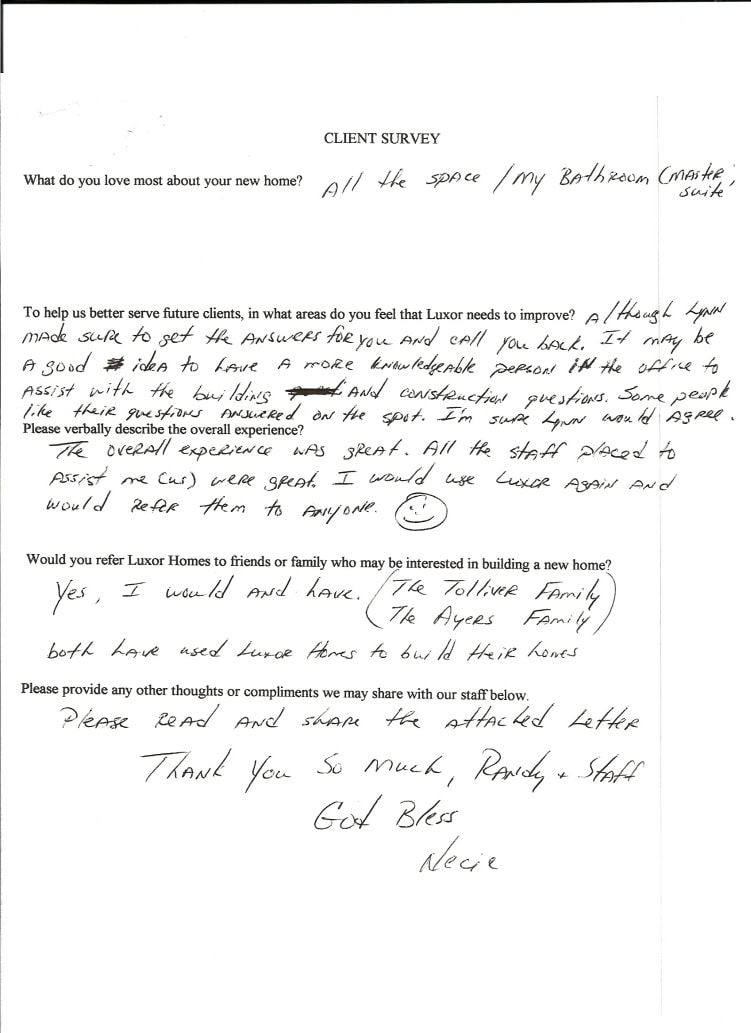 CLIENT SURVEY
What do you love most about your new home? All the space / my Bathroom (master,
suite
To help us better serve future clients, in what areas do you feel that Luxor needs to improve? Although Lynn
made sure to get the answers for you and call you back. It may be
a good idea to have a more knowledgeable person in the office to
assist with the building and construction questions. Some people
like their questions answered on the spot. I'm sure Lynn would agree.
Please verbally describe the overall experience?
The overall experience was great. All the staff placed to
assist me (us) were great. I would use Luxor again and
would refer them to anyone.
Would you refer Luxor Homes to friends or family who may be interested in building a new home?
Yes, I would and have. (The Tolliver Family
The Ayers Family)
both have used Luxor Homes to build their homes
Please provide any other thoughts or compliments we may share with our staff below.
Please read and share the attached letter
Thank You So Much, Randy + Staff
God Bless
Necie